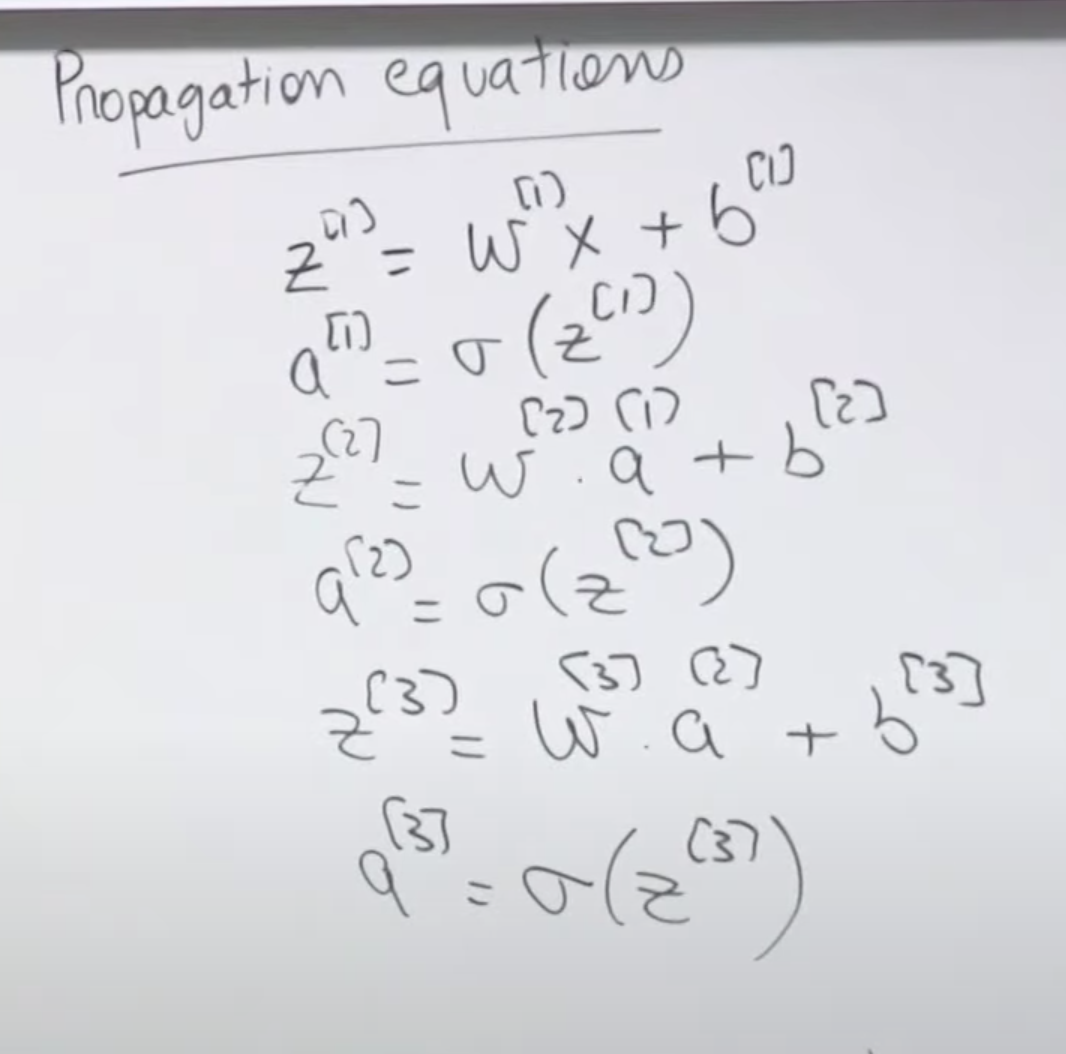 Propagation equations
z^[1] = w^[1] x + b^[1]
a^[1] = σ(z^[1])
z^[2] = w^[2] . a^[1] + b^[2]
a^[2] = σ(z^[2])
z^[3] = w^[3] . a^[2] + b^[3]
a^[3] = σ(z^[3])